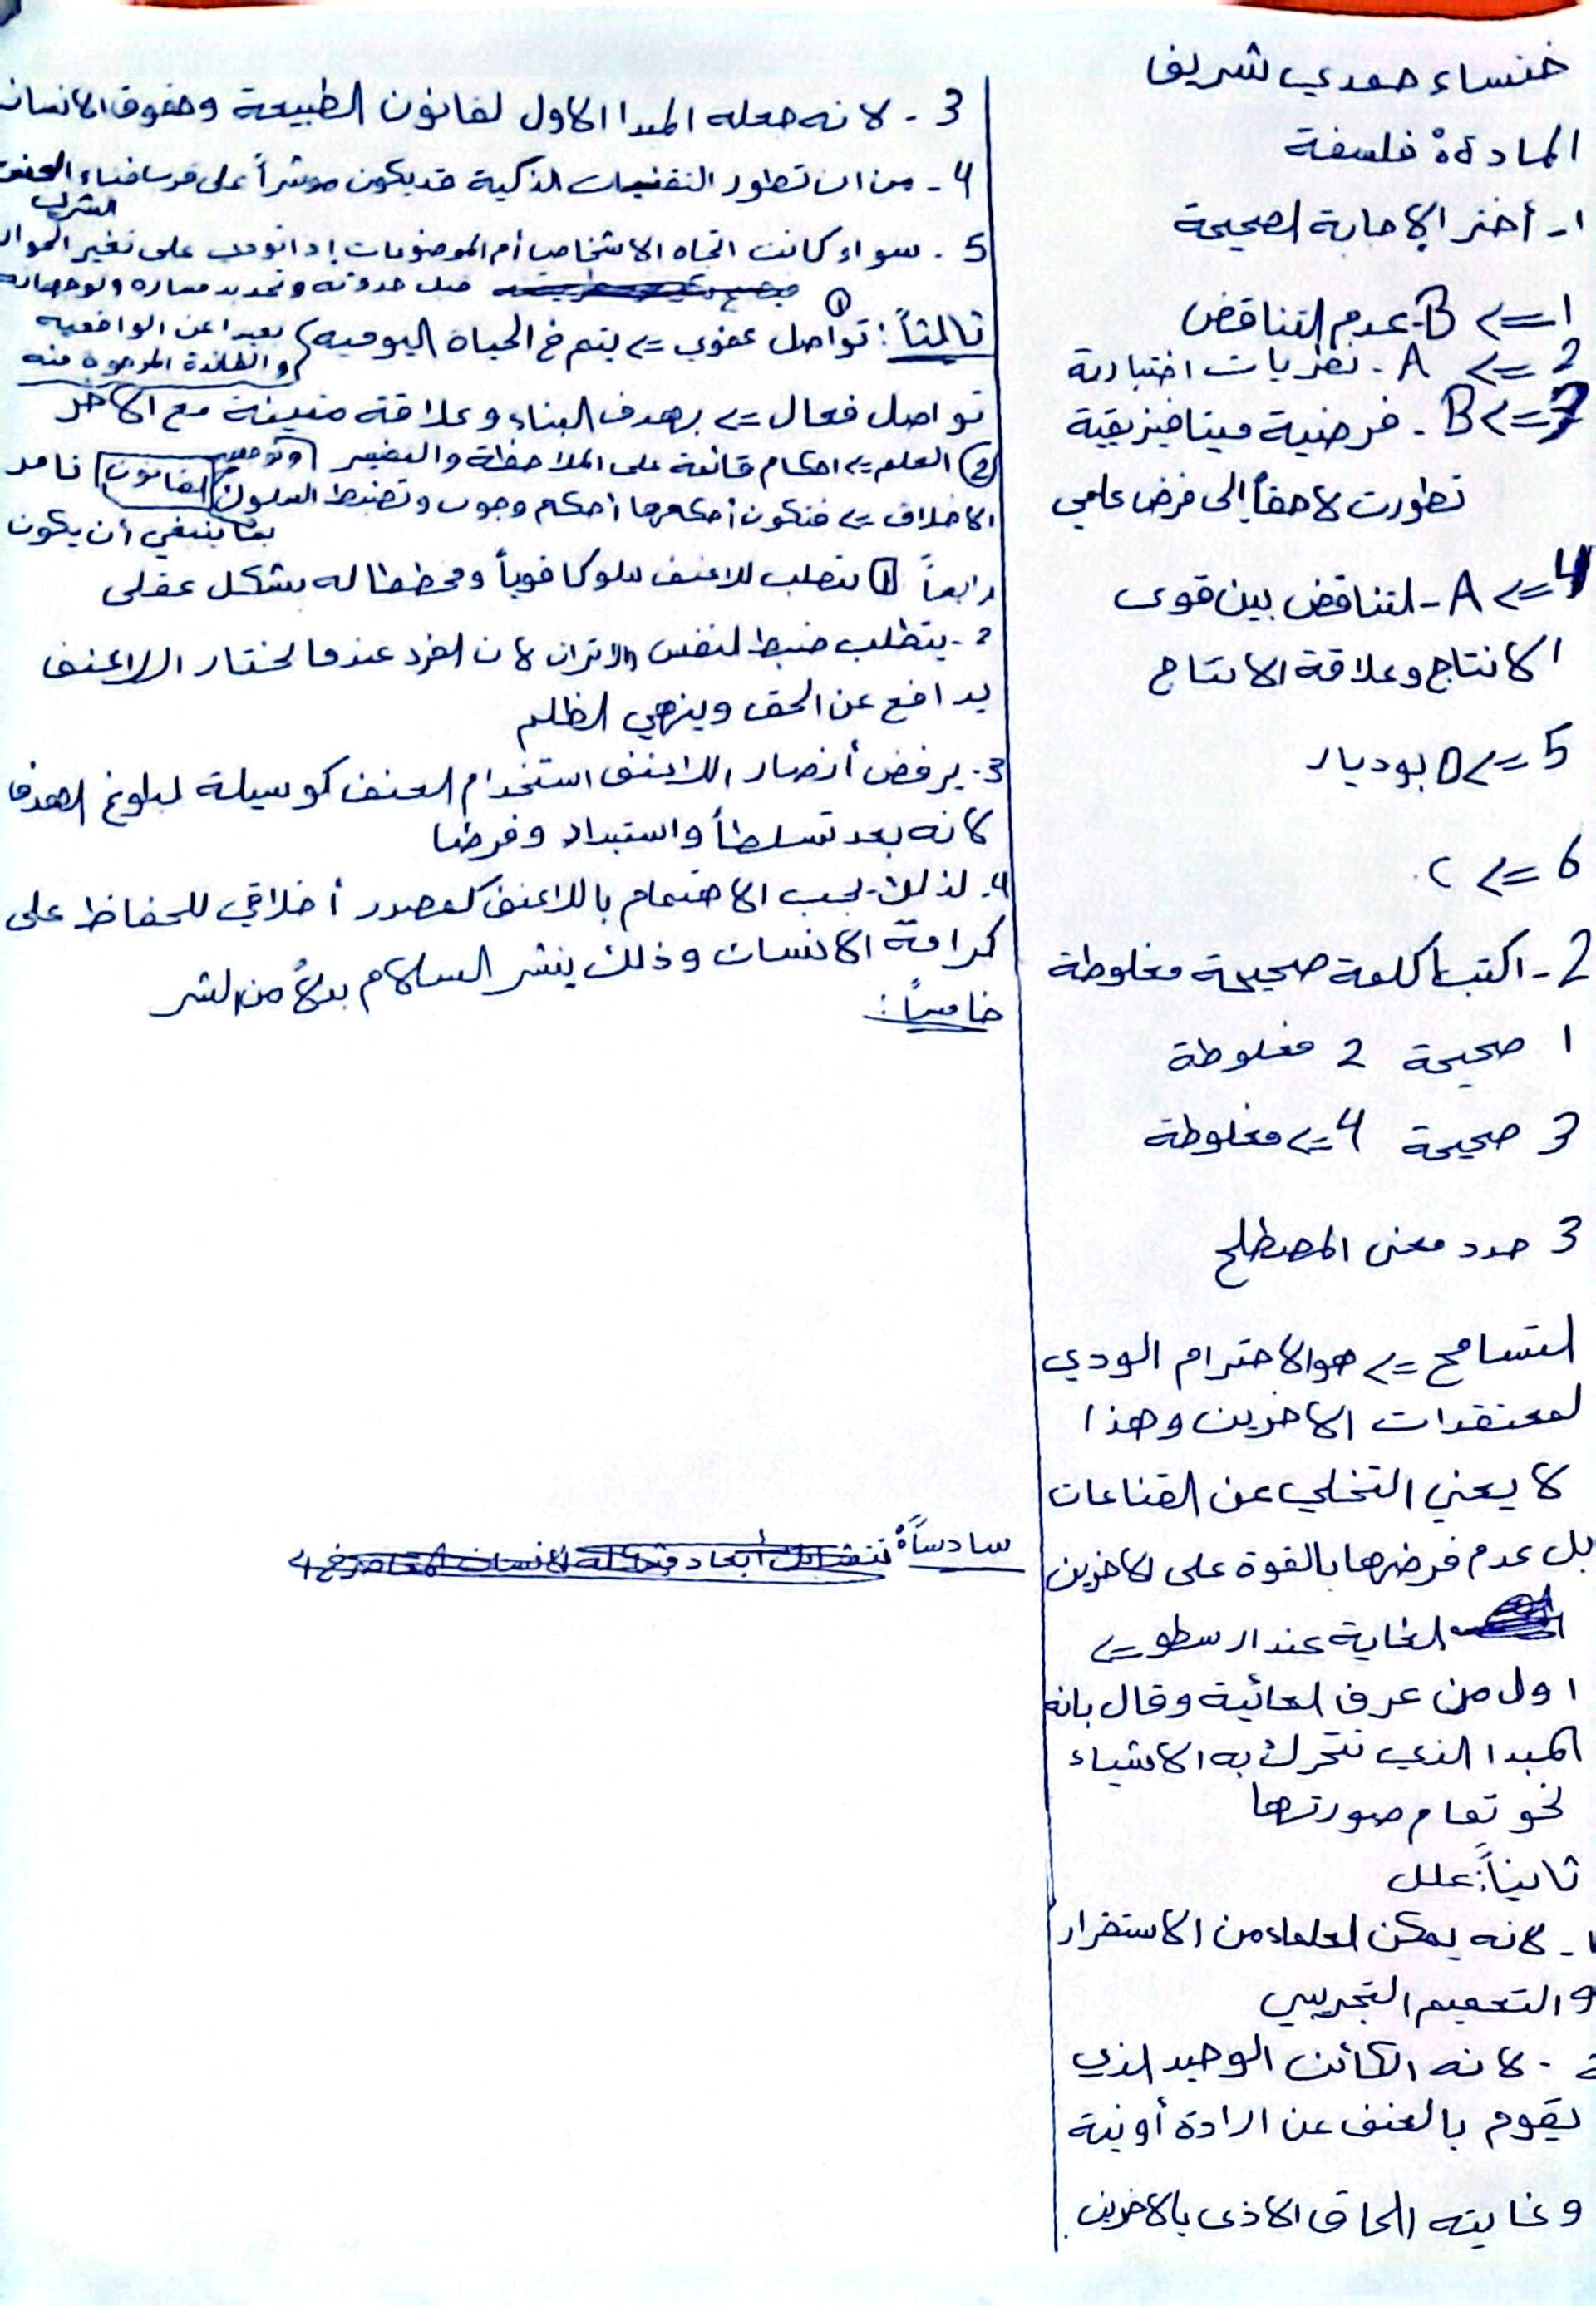 خنساء حمدي شريف
المادة: فلسفة
1- أختر الإجابة الصحيحة
1 => B- عدم التناقض
2 => A- نظريات اختبارية
3 => B- فرضية ميتافيزيقية
تطورت لاحقاً إلى فرض علمي
4 => A- التناقض بين قوى
الانتاج وعلاقة الانتاج
5 => D بوديار
6 => C.
2- اكتب كلمة صحيحة مغلوطة
1 صحيحة 2 مغلوطة
3 صحيحة 4 => مغلوطة
3 حدد معنى المصطلح
التسامح => هو الاحترام الودي
لمعتقدات الاخرين وهذا
لا يعني التخلي عن القناعات
بل عدم فرضها بالقوة على الاخرين
الغاية عند ارسطو =>
اول من عرف الغائية وقال بانه
المبدا الذي تتحرك به الاشياء
نحو تمام صورتها
ثانياً: علل
1- لانه يمكن العلماء من الاستقرار
و التعميم التجريبي
2- لانه الكائن الوحيد الذي
يقوم بالعنف عن ارادة أو نية
وغايته الحاق الاذى بالاخرين.
3- لانه جعله المبدا الاول لقانون الطبيعة وحقوق الانسان
4- من ان تطور التقنيات الذكية قد يكون مؤشراً على قرب فناء الجنس
البشري
5- سواء كانت اتجاه الاشخاص أم الموضوعات إذا نودي على تغير
قبل حدوثه وتحديد مساره
ثالثاً: 1 تواصل عفوي => يتم في الحياة اليومية بعيدا عن الواقعية
والفائدة المرجوة منه
تواصل فعال => بهدف البناء وعلاقة متينة مع الاخر
2 العلم => احكام قائمة على الملاحظة والتفسير
الاخلاق => فتكون أحكامها أحكام وجوب وتضبط السلوك القانون تامر
بما ينبغي أن يكون
رابعاً 1 يتطلب اللاعنف سلوكا قوياً ومخططا له بشكل عقلي
2- يتطلب ضبط النفس والاتزان لان الفرد عندما يختار اللاعنف
يدافع عن الحق وينهي الظلم
3- يرفض أنصار اللاعنف استخدام العنف كوسيلة لبلوغ الهدف
لانه يعد تسلطاً واستبداد وفرضا
4- لذلك يجب الاهتمام باللاعنف كمصدر أخلاقي للحفاظ على
كرامة الانسان وذلك ينشر السلام بدلاً من الشر
خامساً:
سادساً: